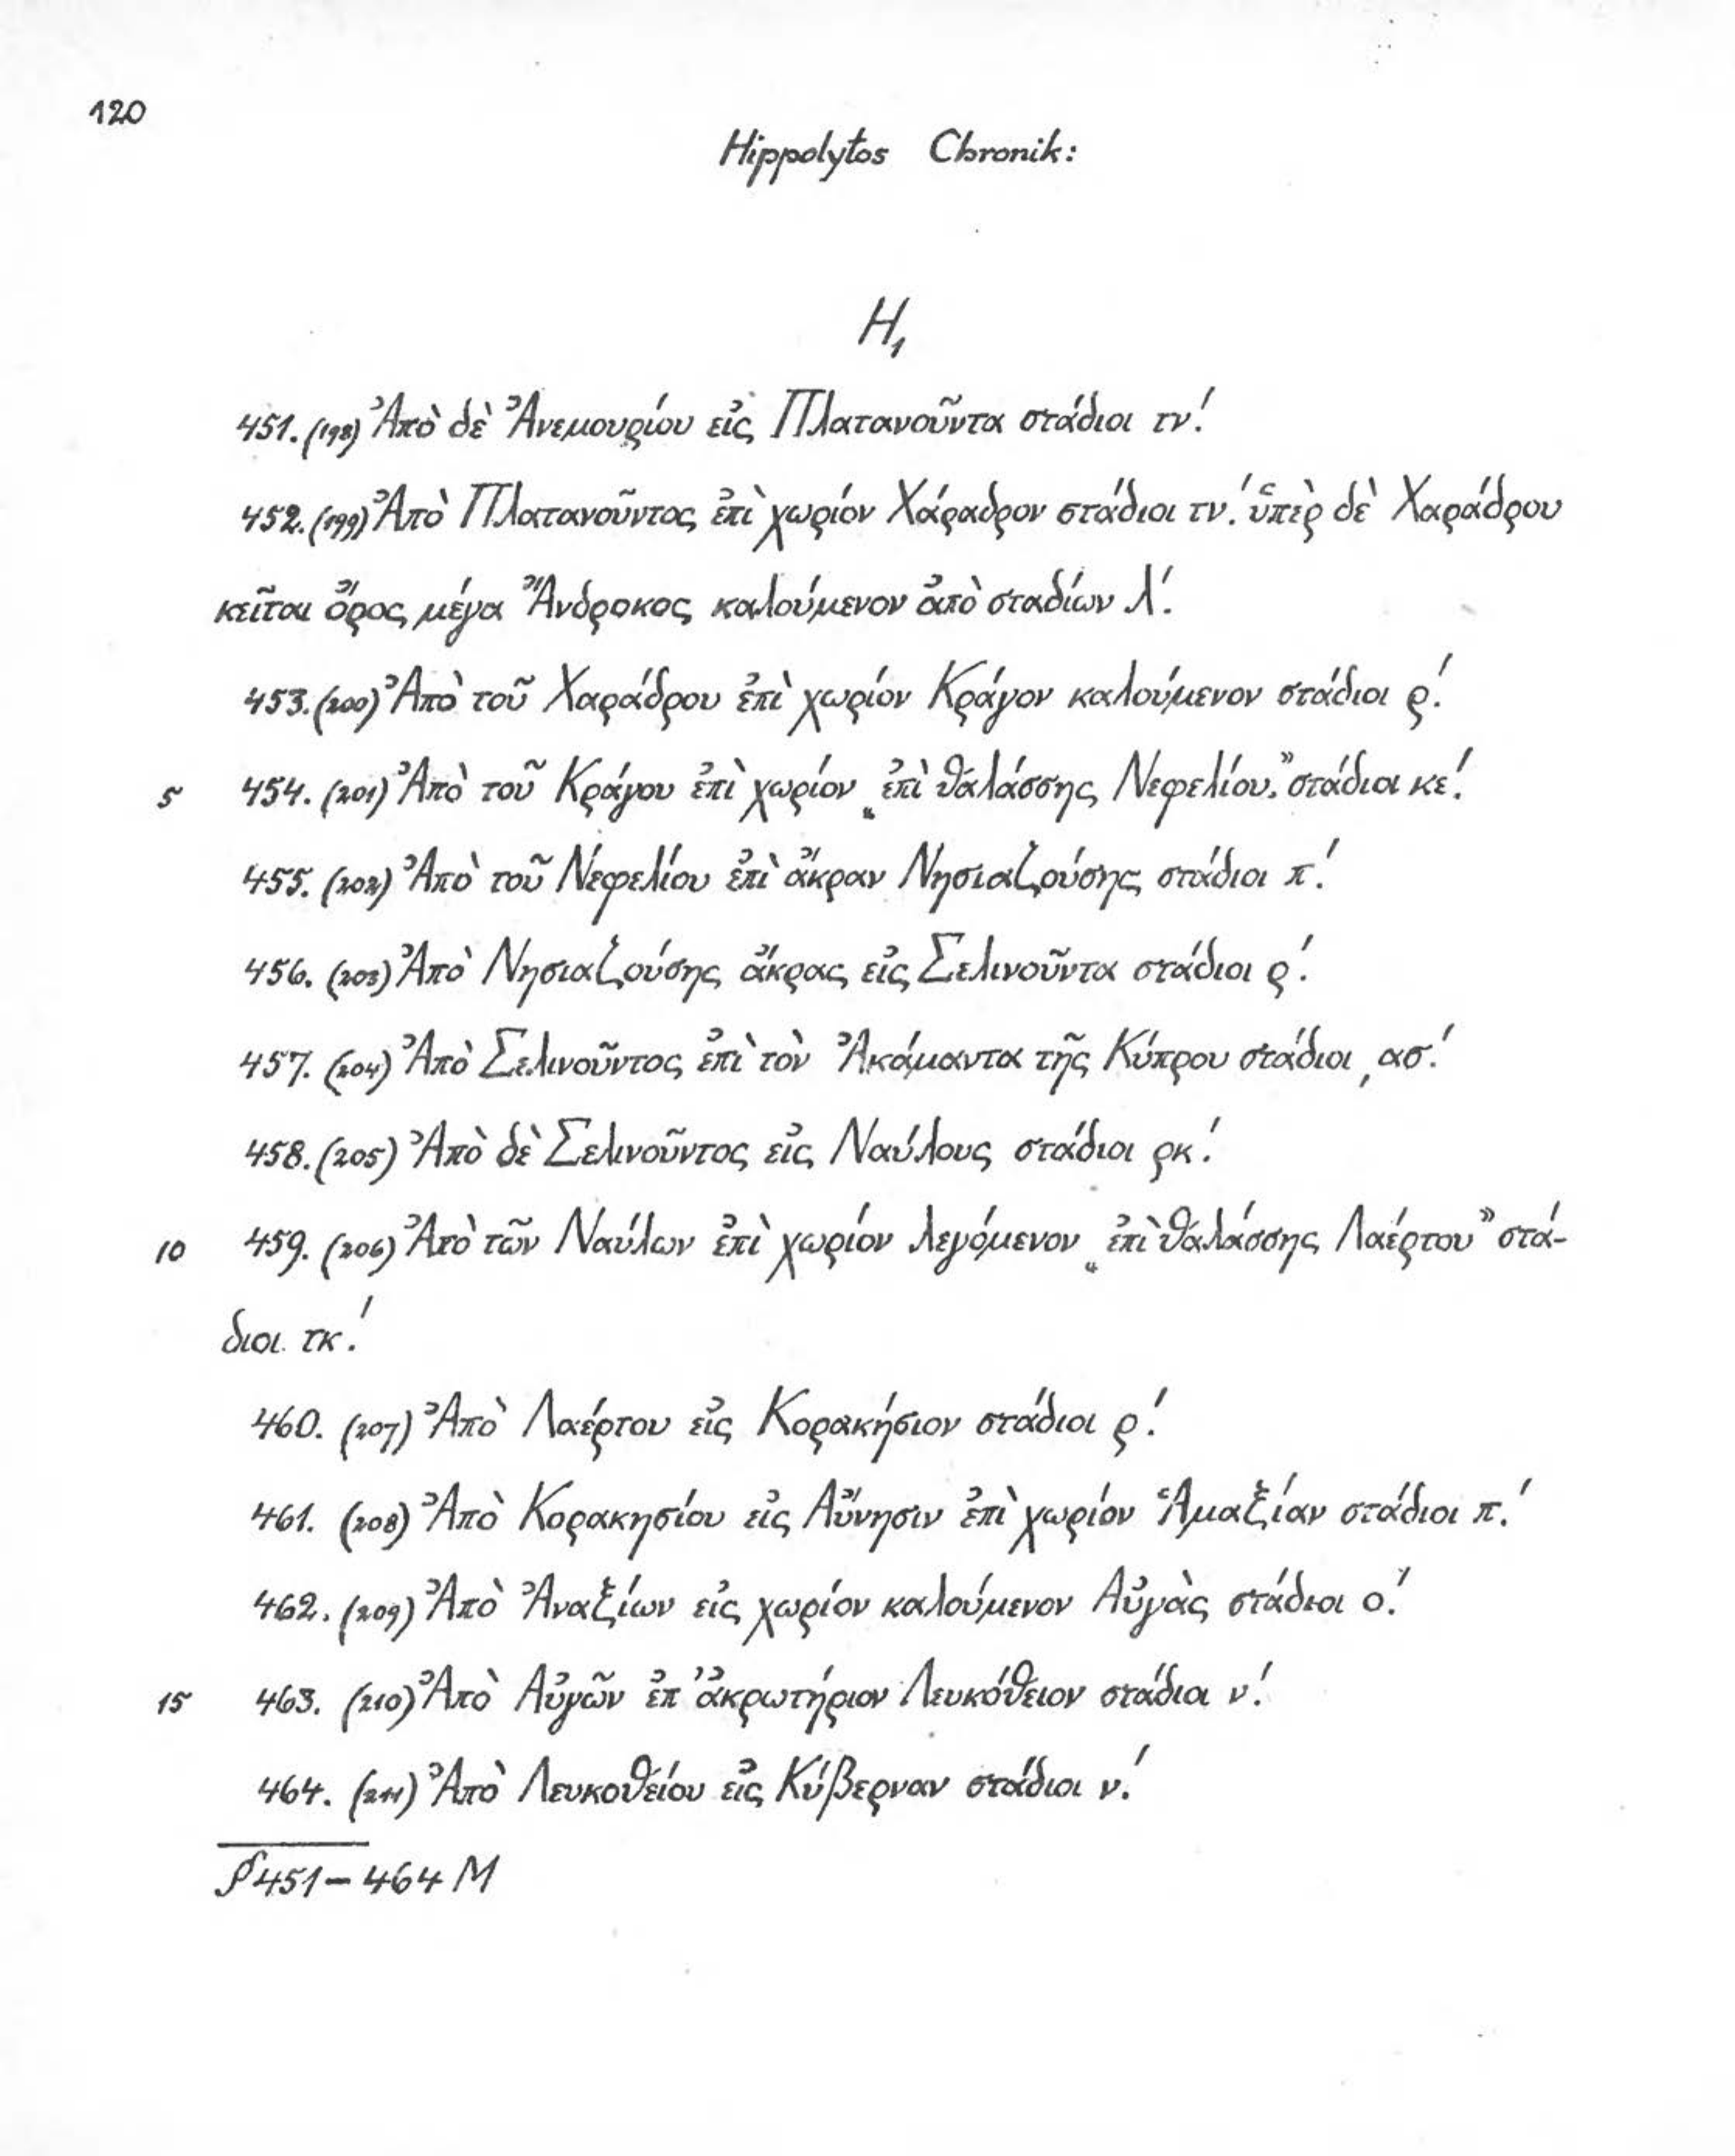 120
Hippolytos Chronik:
H₁
451. (198) Ἀπὸ δὲ Ἀνεμουρίου εἰς Πλατανοῦντα στάδιοι τν'.
452. (199) Ἀπὸ Πλατανοῦντος ἐπὶ χωρίον Χάραδρον στάδιοι τν'. ὑπὲρ δὲ Χαράδρου
κεῖται ὄρος μέγα Ἄνδροκος καλούμενον ἀπὸ σταδίων λ'.
453. (200) Ἀπὸ τοῦ Χαράδρου ἐπὶ χωρίον Κράγον καλούμενον στάδιοι ρ'.
5 454. (201) Ἀπὸ τοῦ Κράγου ἐπὶ χωρίον „ἐπὶ θαλάσσης Νεφελίου.” στάδιοι κε'.
455. (202) Ἀπὸ τοῦ Νεφελίου ἐπὶ ἄκραν Νησιαζούσης στάδιοι π'.
456. (203) Ἀπὸ Νησιαζούσης ἄκρας εἰς Σελινοῦντα στάδιοι ρ'.
457. (204) Ἀπὸ Σελινοῦντος ἐπὶ τὸν Ἀκάμαντα τῆς Κύπρου στάδιοι ͵ασ'.
458. (205) Ἀπὸ δὲ Σελινοῦντος εἰς Ναύλους στάδιοι ρκ'.
10 459. (206) Ἀπὸ τῶν Ναύλων ἐπὶ χωρίον λεγόμενον „ἐπὶ θαλάσσης Λαέρτου” στά-
διοι τκ'.
460. (207) Ἀπὸ Λαέρτου εἰς Κορακήσιον στάδιοι ρ'.
461. (208) Ἀπὸ Κορακησίου εἰς Αὔνησιν ἐπὶ χωρίον Ἁμαξίαν στάδιοι π'.
462. (209) Ἀπὸ Ἀναξίων εἰς χωρίον καλούμενον Αὐγὰς στάδιοι ο'.
15 463. (210) Ἀπὸ Αὐγῶν ἐπ' ἀκρωτήριον Λευκόθειον στάδιοι ν'.
464. (211) Ἀπὸ Λευκοθείου εἰς Κύβερναν στάδιοι ν'.
§ 451–464 M